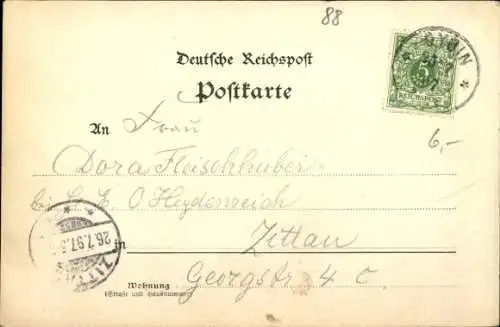 88
OYBIN
Deutsche Reichspost
5
REICHSPOST
Postkarte
6,-
An Frau
Dora Fleischhuber
bei O Heydenreich
26.7.97.
ZITT
in Zittau
Georgstr. 4 c.
Wohnung
(Straße und Hausnummer)